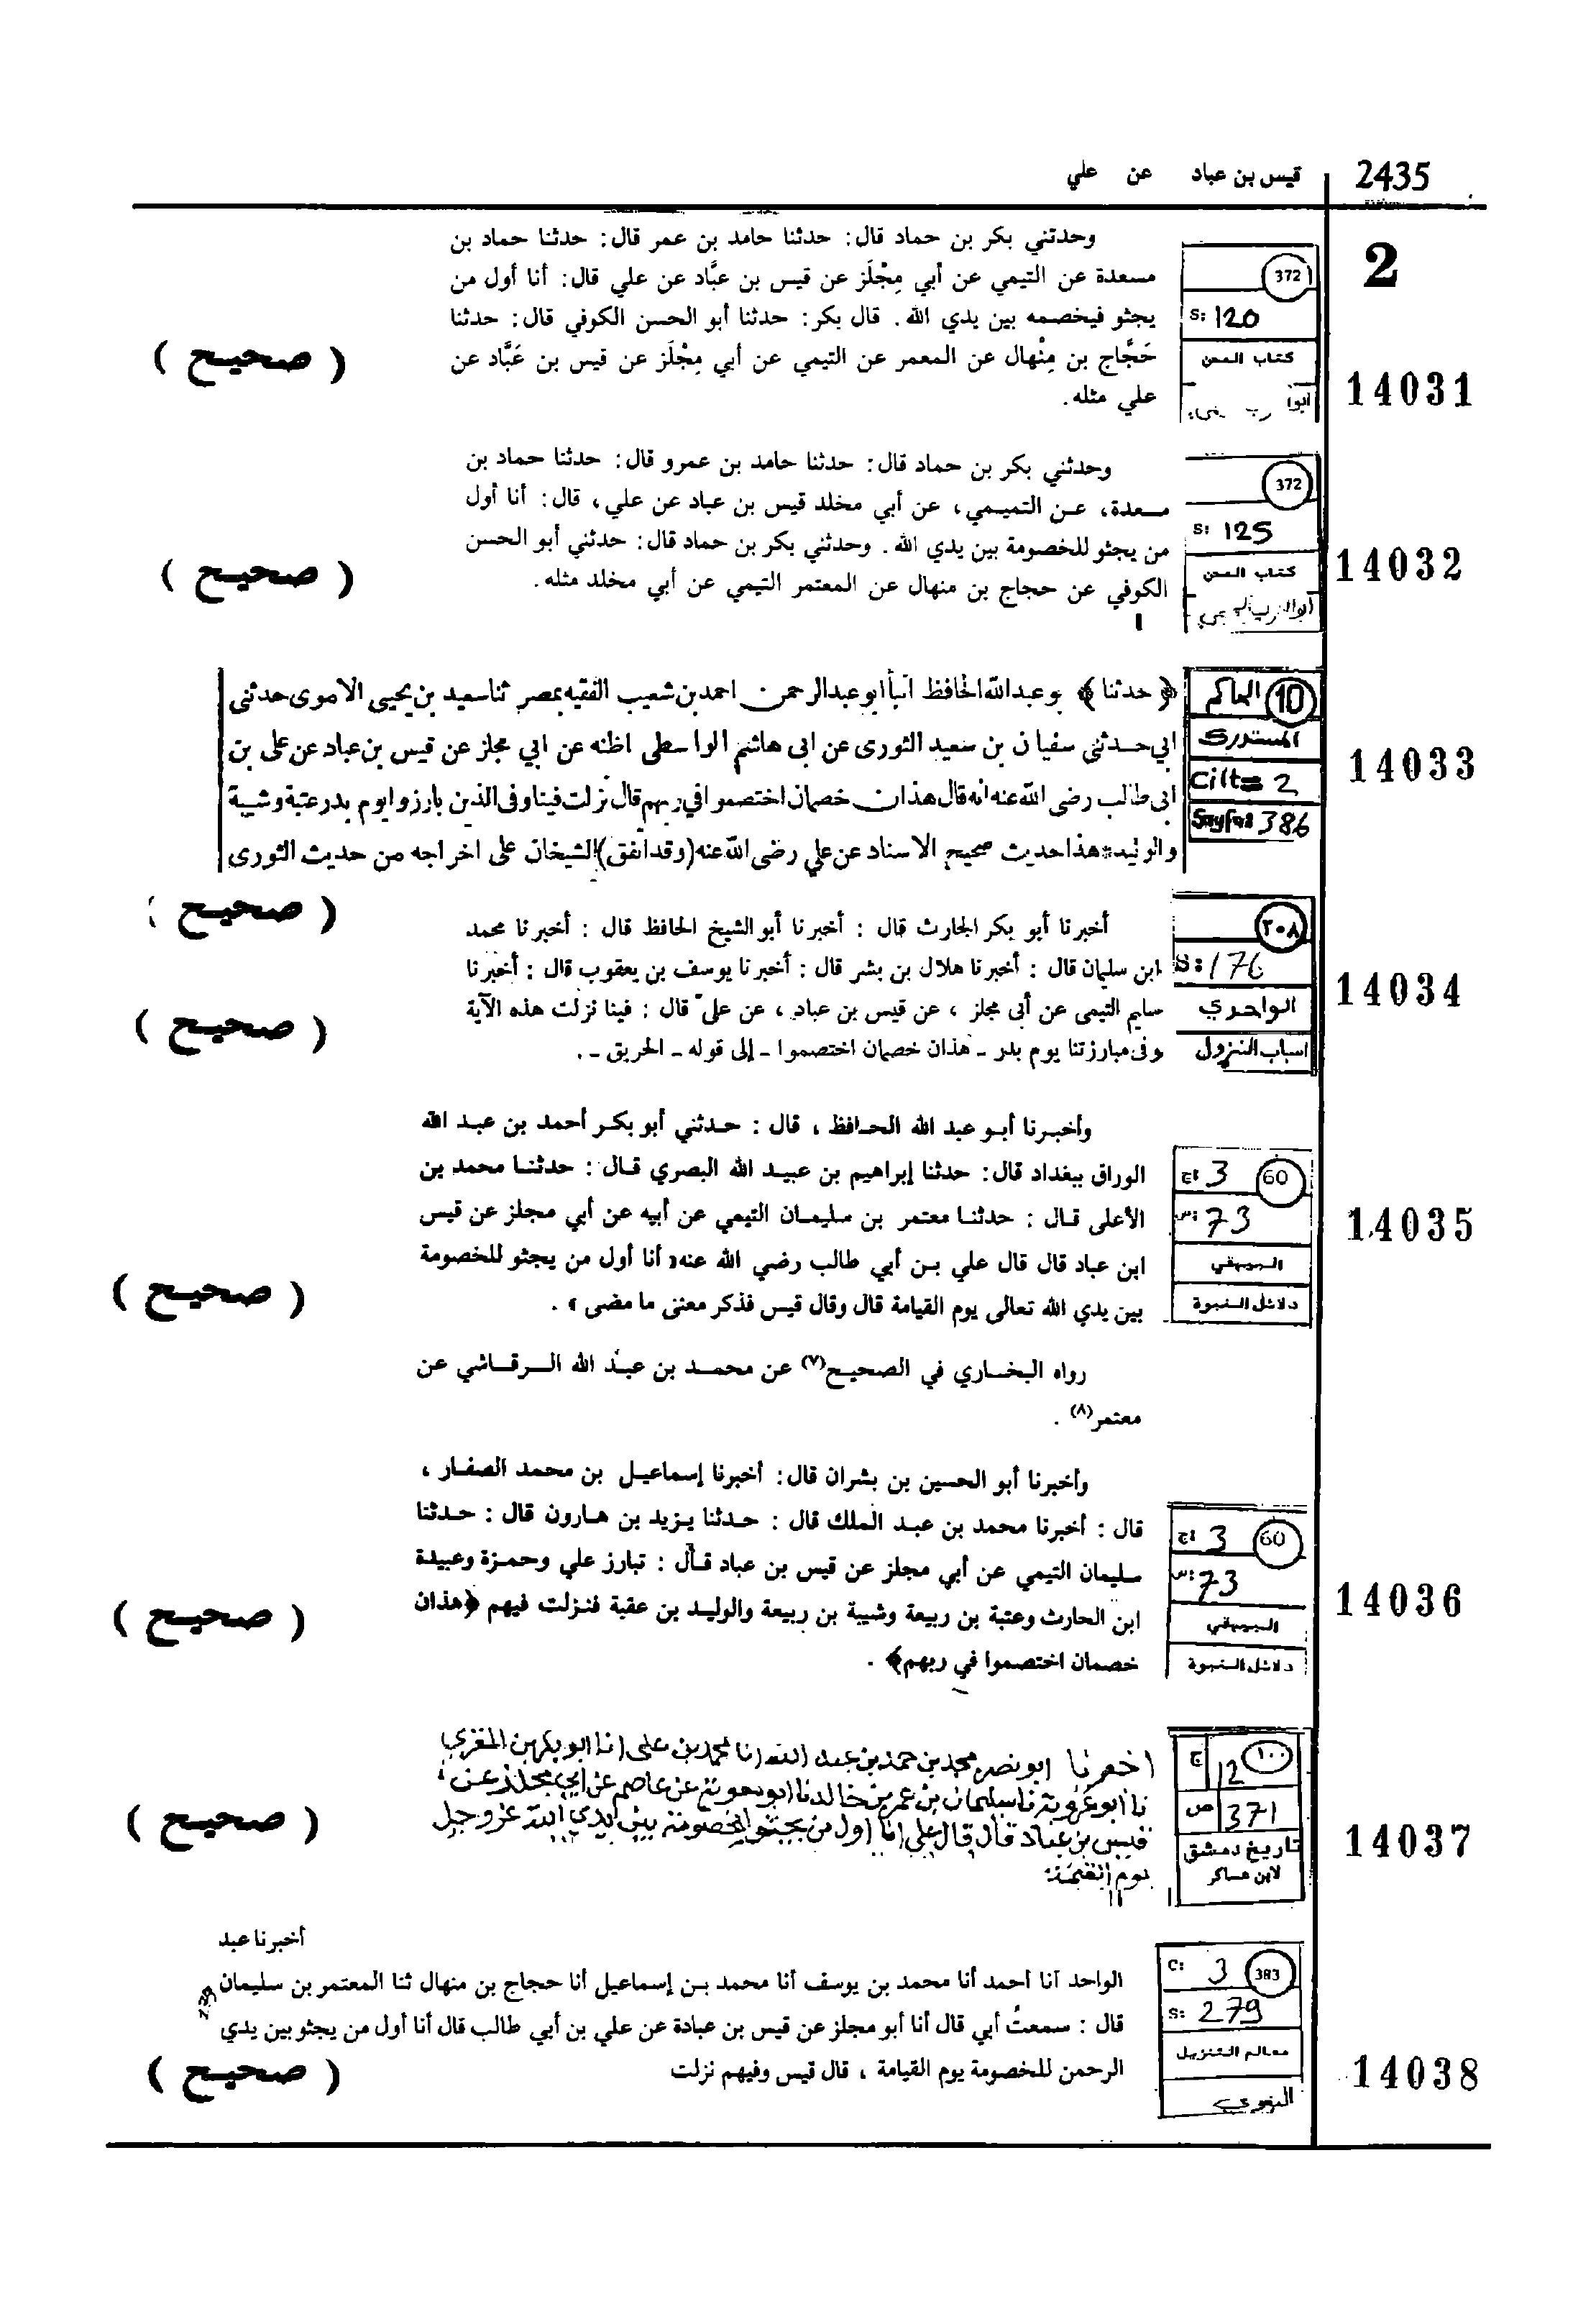 2435
قيس بن عباد عن علي
2
372
S: 120
كتاب المحن
14031
وحدثني بكر بن حماد قال: حدثنا حامد بن عمر قال: حدثنا حماد بن
مسعدة عن التيمي عن أبي مِجْلَز عن قيس بن عبَّاد عن علي قال: أنا أول من
يجثو فيخصمه بين يدي الله. قال بكر: حدثنا أبو الحسن الكوفي قال: حدثنا
حَجَّاج بن مِنْهال عن المعمر عن التيمي عن أبي مِجْلَز عن قيس بن عَبَّاد عن
علي مثله.
( صحيح )
372
S: 125
كتاب المحن
14032
وحدثني بكر بن حماد قال: حدثنا حامد بن عمرو قال: حدثنا حماد بن
مسعدة، عن التميمي، عن أبي مخلد قيس بن عباد عن علي، قال: أنا أول
من يجثو للخصومة بين يدي الله. وحدثني بكر بن حماد قال: حدثني أبو الحسن
الكوفي عن حجاج بن منهال عن المعتمر التيمي عن أبي مخلد مثله.
( صحيح )
10 الحاكم
المستدرك
Cilt= 2
Sayfa: 386
14033
﴿ حدثنا ﴾ بو عبد الله الحافظ انبأ ابو عبد الرحمن احمد بن شعيب الفقيه بمصر ثنا سعيد بن يحيى الاموى حدثنى
ابي حدثنى سفيان بن سعيد الثورى عن ابى هاشم الواسطى اظنه عن ابي مجلز عن قيس بن عباد عن على بن
ابى طالب رضى الله عنه انه قال هذان خصمان اختصموا في ربهم قال نزلت فينا وفى الذين بارزوا يوم بدر عتبة وشيبة
والوليد * هذا حديث صحيح الاسناد عن علي رضى الله عنه (وقد اتفق) الشيخان على اخراجه من حديث الثورى
( صحيح )
٢٠٨
S: 176
الواحدي
اسباب النزول
14034
أخبرنا أبو بكر الحارث قال : أخبرنا أبو الشيخ الحافظ قال : أخبرنا محمد
ابن سليمان قال : أخبرنا هلال بن بشر قال : أخبرنا يوسف بن يعقوب قال : أخبرنا
سليم التيمى عن أبى مجلز ، عن قيس بن عباد ، عن علىّ قال : فينا نزلت هذه الآية
وفى مبارزتنا يوم بدر - هذان خصمان اختصموا - إلى قوله - الحريق - .
( صحيح )
60 ج: 3
ص: 73
البيهقي
دلائل النبوة
14035
وأخبرنا أبو عبد الله الحافظ ، قال : حدثني أبو بكر أحمد بن عبد الله
الوراق ببغداد قال: حدثنا إبراهيم بن عبيد الله البصري قال : حدثنا محمد بن
الأعلى قال : حدثنا معتمر بن سليمان التيمي عن أبيه عن أبي مجلز عن قيس
ابن عباد قال قال علي بن أبي طالب رضي الله عنه « أنا أول من يجثو للخصومة
بين يدي الله تعالى يوم القيامة قال وقال قيس فذكر معنى ما مضى » .
( صحيح )
رواه البخاري في الصحيح(٧) عن محمد بن عبد الله الرقاشي عن
معتمر(٨) .
60 ج: 3
ص: 73
البيهقي
دلائل النبوة
14036
وأخبرنا أبو الحسين بن بشران قال: أخبرنا إسماعيل بن محمد الصفار ،
قال : أخبرنا محمد بن عبد الملك قال : حدثنا يزيد بن هارون قال : حدثنا
سليمان التيمي عن أبي مجلز عن قيس بن عباد قال : تبارز علي وحمزة وعبيدة
ابن الحارث وعتبة بن ربيعة وشيبة بن ربيعة والوليد بن عقبة فنزلت فيهم ﴿هذان
خصمان اختصموا في ربهم﴾ .
( صحيح )
١٠٠ ج 12
ص 371
تاريخ دمشق
لابن عساكر
14037
اخبرنا ابو نصر محمد بن حمد بن عبد الله انا محمد بن على انا ابو بكر بن المقري
نا ابو عروبة نا سليمان بن عمر بن خالد نا ابو معوية عن عاصم عن ابي مجلز عن
قيس بن عباد قال قال علي انا اول من يجثو للخصومة بين يدي الله عز وجل
يوم القيمة
( صحيح )
383 C: 3
S: 279
معالم التنزيل
البغوي
14038
أخبرنا عبد
الواحد أنا أحمد أنا محمد بن يوسف أنا محمد بن إسماعيل أنا حجاج بن منهال ثنا المعتمر بن سليمان
قال : سمعتُ أبي قال أنا أبو مجلز عن قيس بن عبادة عن علي بن أبي طالب قال أنا أول من يجثو بين يدي
الرحمن للخصومة يوم القيامة ، قال قيس وفيهم نزلت
( صحيح )